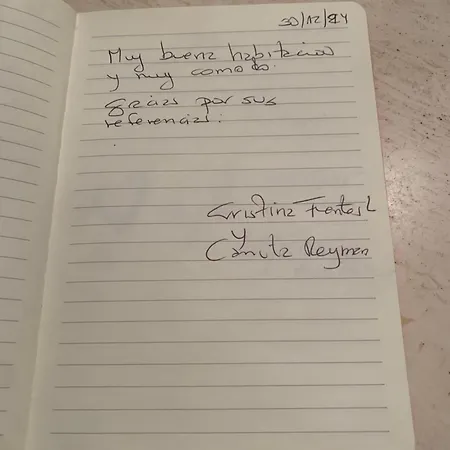 30/12/24
Muy buena habitacion
y muy comodo.
Gracias por sus
referencias.
Cristina
y
Reyman